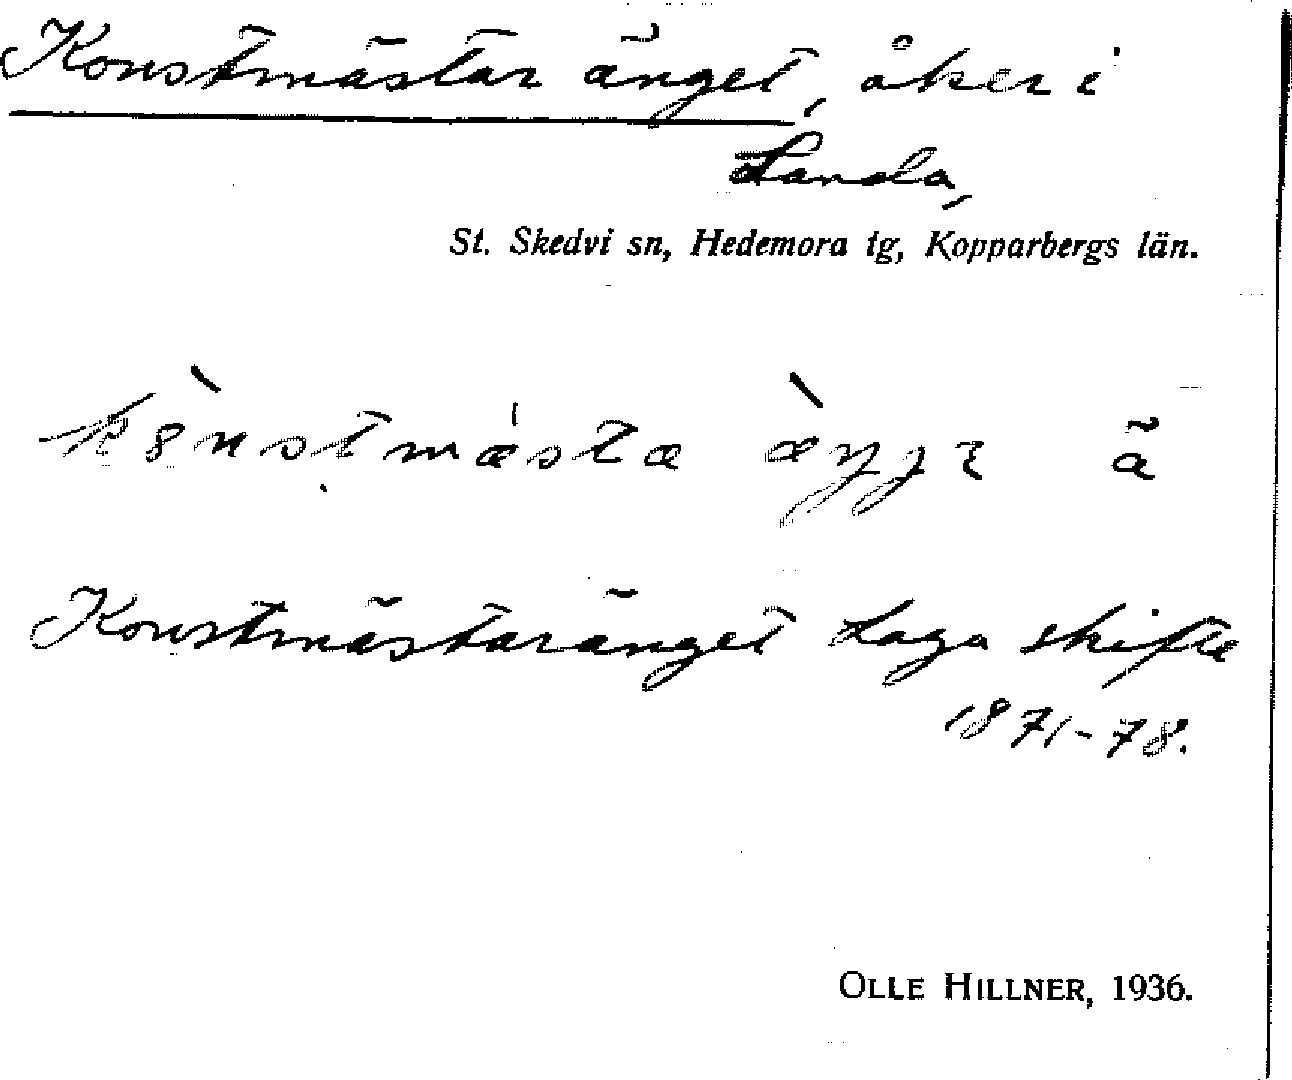 Konstmästar änget, åker i
Landa,
St. Skedvi sn, Hedemora tg, Kopparbergs län.
ä
Konstmästaränget Laga skifte
1871-78.
OLLE HILLNER, 1936.